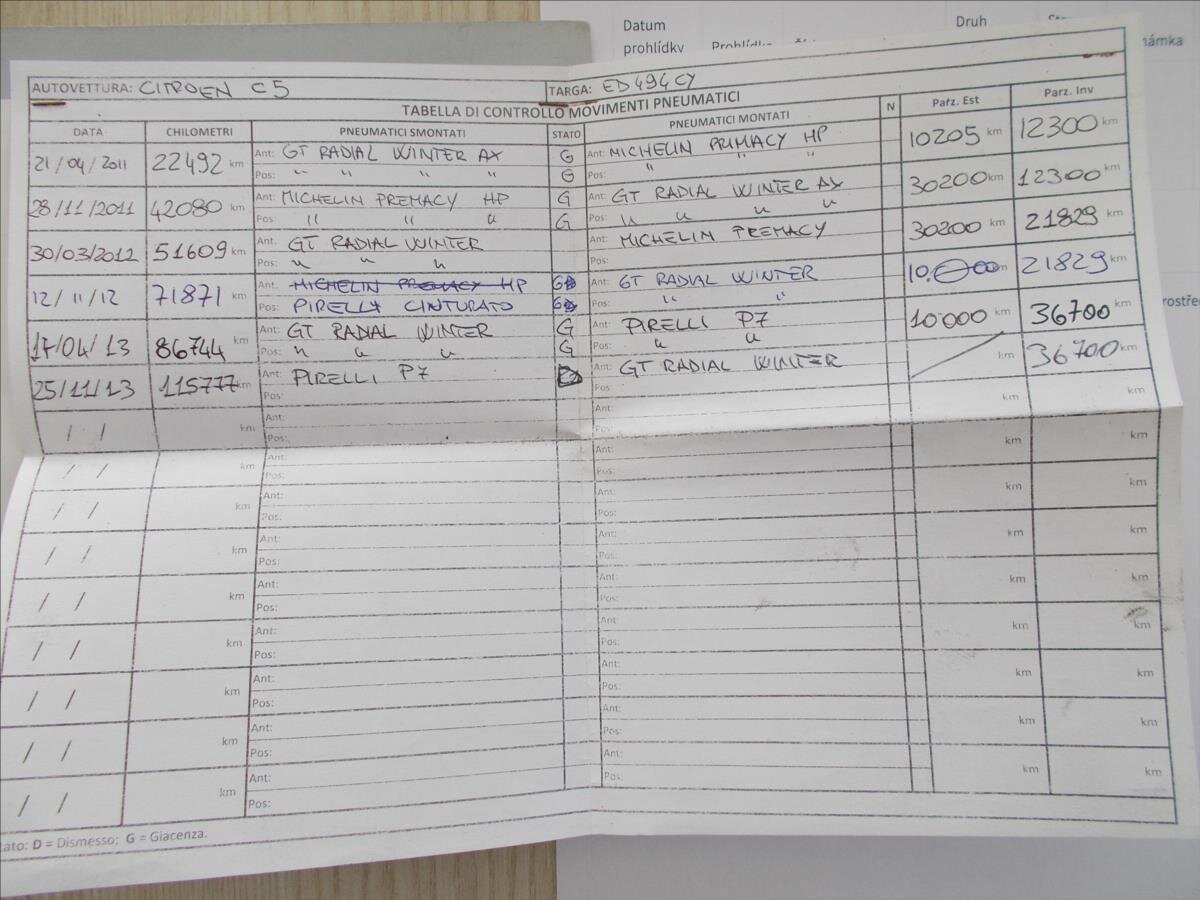 Datum
Druh
prohlídky
AUTOVETTURA: CITROEN C5 TARGA: ED494CY
TABELLA DI CONTROLLO MOVIMENTI PNEUMATICI
DATA CHILOMETRI PNEUMATICI SMONTATI STATO PNEUMATICI MONTATI N Parz. Est Parz. Inv
21/04/2011 22492 km Ant: GT RADIAL WINTER AX G Ant: MICHELIN PRIMACY HP 10205 km 12300 km
Pos: " " " " G Pos: " " "
28/11/2011 42080 km Ant: MICHELIN PREMACY HP G Ant: GT RADIAL WINTER AX 30200 km 12300 km
Pos: " " " G Pos: " " " "
30/03/2012 51609 km Ant: GT RADIAL WINTER Ant: MICHELIN PREMACY 30200 km 21829 km
Pos: " " " Pos:
12/11/12 71871 km Ant: MICHELIN PREMACY HP G Ant: GT RADIAL WINTER 21829 km
Pos: PIRELLI CINTURATO G Pos: " "
17/04/13 86744 km Ant: GT RADIAL WINTER G Ant: PIRELLI P7 10000 km 36700 km
Pos: " " " G Pos: " "
25/11/13 115777 km Ant: PIRELLI P7 Ant: GT RADIAL WINTER km 36700 km
Pos: Pos:
/ / km Ant: Ant: km km
Pos: Pos:
/ / km Ant: Ant: km km
Pos: Pos:
/ / km Ant: Ant: km km
Pos: Pos:
/ / km Ant: Ant: km km
Pos: Pos:
/ / km Ant: Ant: km km
Pos: Pos:
/ / km Ant: Ant: km km
Pos: Pos:
/ / km Ant: Ant: km km
Pos: Pos:
/ / km Ant: Ant: km km
Pos: Pos:
/ / km Ant: Ant: km km
Pos: Pos:
D = Dismesso; G = Giacenza.